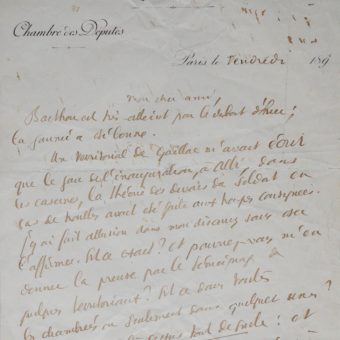 Chambre des Députés
Paris le Vendredi 189
mon cher ami,
Barthou est très atteint par le debut d'hier;
la journée a été bonne.
Un national de Gaillac m'avait écrit
que le jour de l'inauguration, à Albi, dans
les casernes, la théorie des devoirs du soldat en
cas de troubles avait été faite aux troupes consignées.
J'y ai fait allusion dans mon discours sans oser
l'affirmer. Est-ce exact? et pourriez-vous m'en
donner la preuve par le témoignage de
quelques territoriaux? Est-ce dans toutes
les chambrées ou seulement dans quelques unes?
tout de suite: et